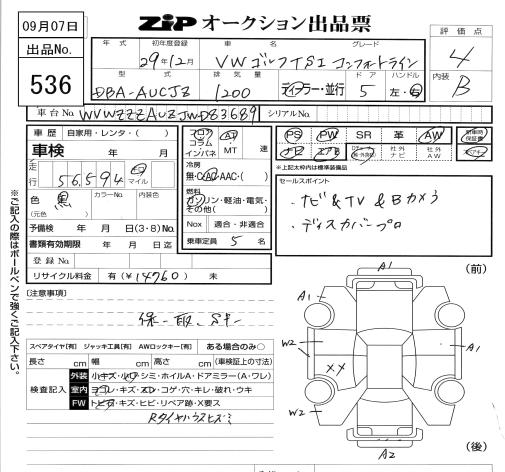 09月07日
ZIP オークション出品票
出品No.
536
年式 初年度登録 車名 グレード
29年12月 VW ゴルフTSI コンフォートライン
評価点
4
型式 排気量 ドア ハンドル
DBA-AUCJZ 1200 ディーラー・並行 5 左・右
内装
B
車台No. WVWZZZAUZJWD83689 シリアルNo.
車歴 自家用・レンタ・( )
車検 年 月
走行 56,594 キロ マイル
色 黒 カラーNo. 内装色
(元色 )
予備検 年 月 日(3・8)No.
書類有効期限 年 月 日迄
登録No.
リサイクル料金 有(¥14760) 未
フロア
コラム
インパネ
AT
MT 速
冷房
無・C・AAC・( )
燃料
ガソリン・軽油・電気・
その他( )
Nox 適合・非適合
乗車定員 5 名
PS PW SR 革 AW
ナビ エアB 社外ナビ 社外AW
新車時保証書
*上記太枠内は標準装備品
セールスポイント
・ナビ&TV&Bカメラ
・ディスカバープロ
※ご記入の際はボールペンで強くご記入下さい。
[注意事項]
保、取、Sキー
スペアタイヤ[有] ジャッキ工具[有] AWロックキー[有] ある場合のみ○
長さ cm 幅 cm 高さ cm (車検証上の寸法)
検査記入
外装 小キズ・小凹・シミ・ホイルA・ドアミラー(A・ワレ)
室内 ヨゴレ・キズ・スレ・コゲ・穴・キレ・破れ・ウキ
FW トビ石・キズ・ヒビ・リペア跡・X要ス
Rタイヤハウスヒズミ
(前)
A1
A1
W2
XX
A1
W2
A2
(後)